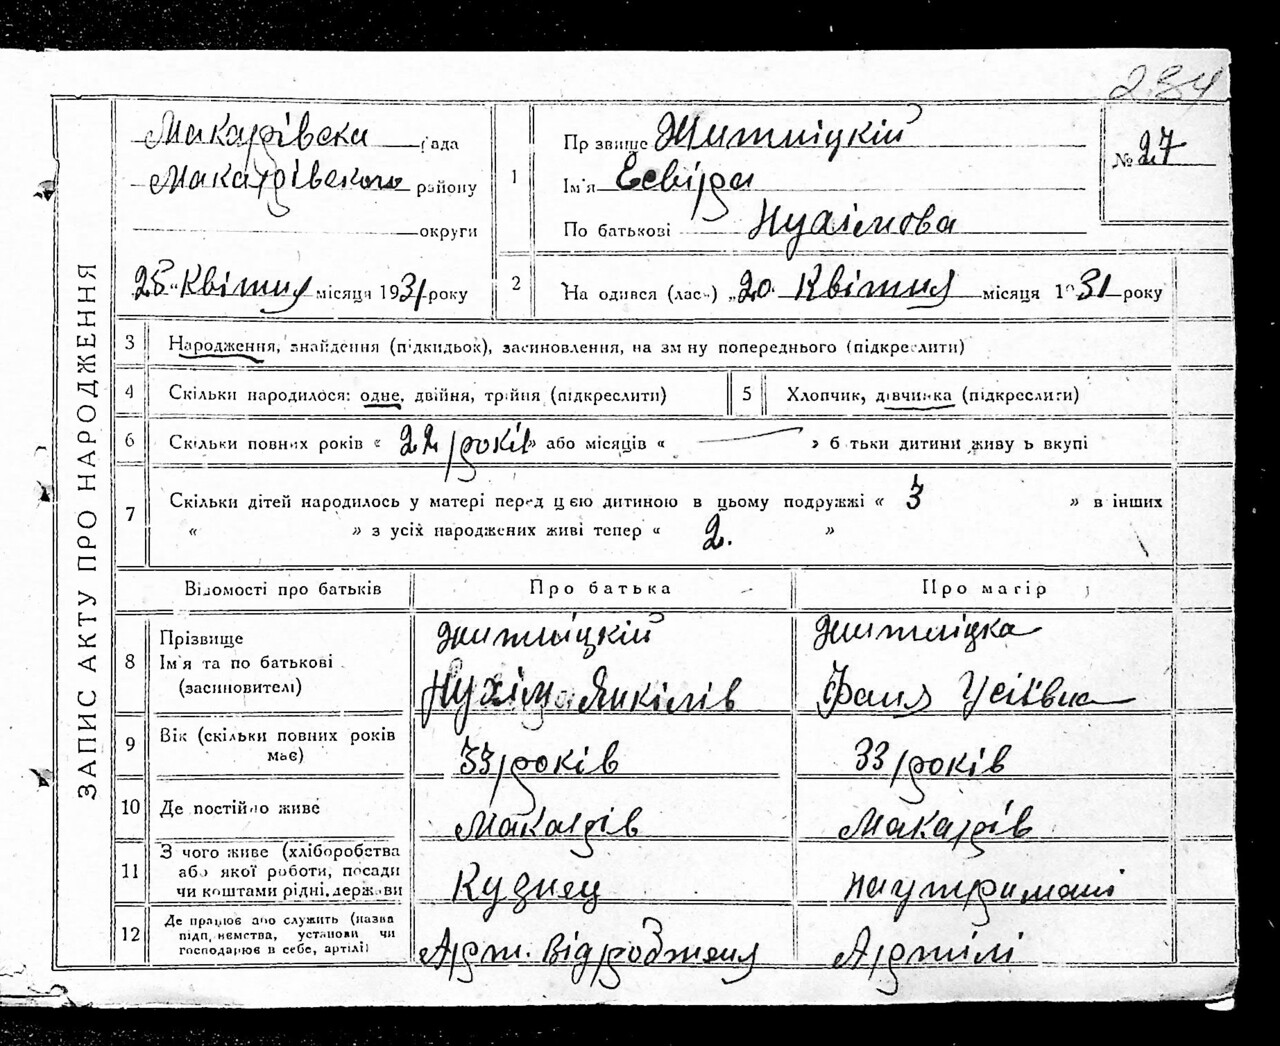 234
ЗАПИС АКТУ ПРО НАРОДЖЕННЯ
Макарівска рада
Макарівского району
округи
25 Квітня місяця 1931 року
1
Прзвище Житніцкій
Ім'я Есвіра
По батькові Нухімова
№ 27
2
На одився (лась) „20. Квітня місяця 1931 року
3 Народження, знайдення (підкидьок), засиновлення, на зміну попереднього (підкреслити)
4 Скільки народилося: одне, двійня, трійня (підкреслити)
5 Хлопчик, дівчинка (підкреслити)
6 Скільки повних років « 22 років » або місяців « — » батьки дитини живуть вкупі
7 Скільки дітей народилось у матері перед цією дитиною в цьому подружжі « 3 » в інших
« » з усіх народжених живі тепер « 2. »
Відомості про батьків Про батька Про матір
8 Прізвище Ім'я та по батькові (засиновителі)
Житніцкій Житніцка
Нухім Янкілів Фаня Усіївна
9 Вік (скільки повних років має) 33 років 33 років
10 Де постійно живе Макарів Макарів
11 З чого живе (хліборобства або якої роботи, посади чи коштами рідні, держави
Кузнец на утримані
12 Де працює або служить (назва підприємства, установи чи господарює в себе, артілі)
Арт. Відродженя Артілі